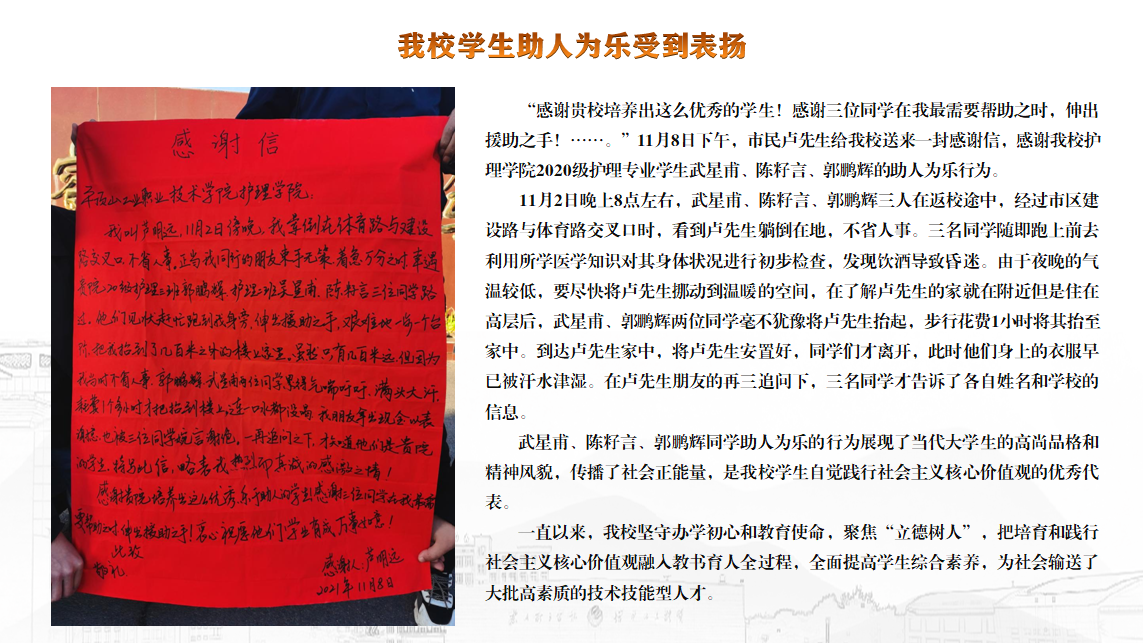 我校学生助人为乐受到表扬
感谢信
平顶山工业职业技术学院护理学院：
我叫芦明远，11月2日傍晚，我晕倒在体育路与建设
路交叉口，不省人事，正当我同行的朋友束手无策，着急万分之时，幸遇
贵院20级护理三班郭鹏辉，护理 班吴星甫、陈籽言三位同学路
过，他们见状赶忙跑到我身旁，伸出援助之手，艰难地一步一个台
阶，把我抬到了几百米之外的楼上家里。虽然只有几百米远，但因为
我当时不省人事，郭鹏辉、武星甫两位同学累得气喘吁吁、满头大汗，
花费1个多小时才把抬到楼上，连一口水都没喝，我朋友拿出现金以表
谢意，也被三位同学婉言谢绝，一再追问之下，才知道他们是贵院
的学生，特写此信，略表我热烈而真诚的感激之情！
感谢贵院培养出这么优秀、乐于助人的学生！感谢三位同学在我最需
要帮助之时伸出援助之手！衷心祝愿他们学业有成，万事如意！
此致
敬礼
感谢人：芦明远
2021年11月8日
“感谢贵校培养出这么优秀的学生！感谢三位同学在我最需要帮助之时，伸出
援助之手！……。”11月8日下午，市民卢先生给我校送来一封感谢信，感谢我校护
理学院2020级护理专业学生武星甫、陈籽言、郭鹏辉的助人为乐行为。
11月2日晚上8点左右，武星甫、陈籽言、郭鹏辉三人在返校途中，经过市区建
设路与体育路交叉口时，看到卢先生躺倒在地，不省人事。三名同学随即跑上前去
利用所学医学知识对其身体状况进行初步检查，发现饮酒导致昏迷。由于夜晚的气
温较低，要尽快将卢先生挪动到温暖的空间，在了解卢先生的家就在附近但是住在
高层后，武星甫、郭鹏辉两位同学毫不犹豫将卢先生抬起，步行花费1小时将其抬至
家中。到达卢先生家中，将卢先生安置好，同学们才离开，此时他们身上的衣服早
已被汗水津湿。在卢先生朋友的再三追问下，三名同学才告诉了各自姓名和学校的
信息。
武星甫、陈籽言、郭鹏辉同学助人为乐的行为展现了当代大学生的高尚品格和
精神风貌，传播了社会正能量，是我校学生自觉践行社会主义核心价值观的优秀代
表。
一直以来，我校坚守办学初心和教育使命，聚焦“立德树人”，把培育和践行
社会主义核心价值观融入教书育人全过程，全面提高学生综合素养，为社会输送了
大批高素质的技术技能型人才。